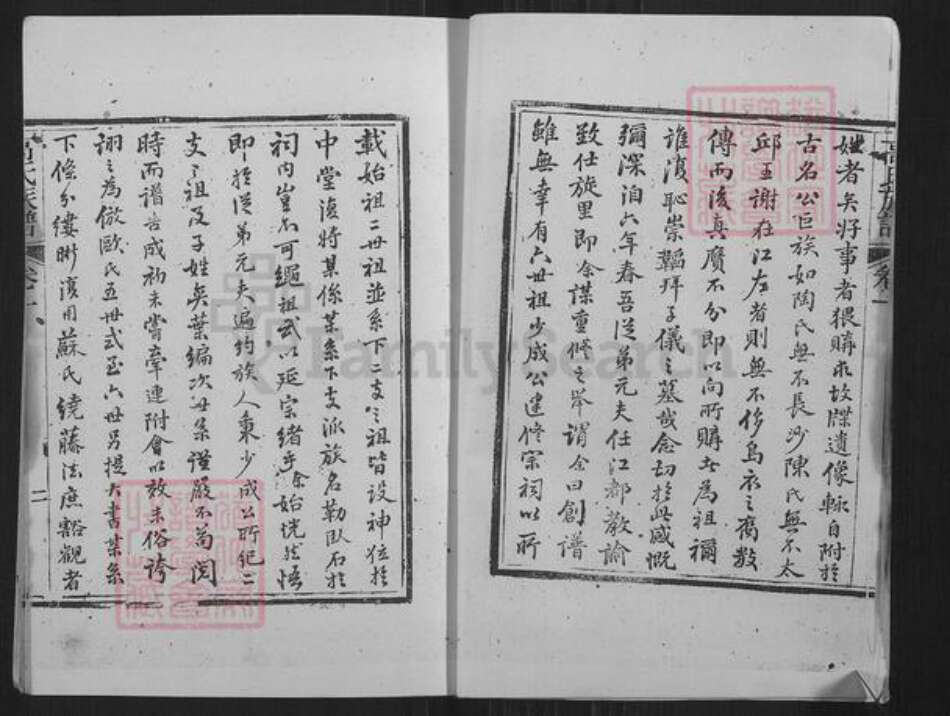 姓者矣好事者猥購求故牒遺像輙自附於
古名公巨族如陶氏無不長沙陳氏無不太
邱王謝在江左者則無不侈烏衣之舊數
傳而後真贋不分即以向所購者為祖禰
誰復恥崇韜拜子儀之墓哉念切於此感慨
彌深洎六年春吾從弟元夫任江都教諭
致仕旋里即余謀重修之舉謂余曰創譜
雖無幸有六世祖少成公建修宗祠以所
載始祖二世祖並系下二支之祖皆設神位於
中堂復將某係某系下支派族名勒臥石於
祠內豈不可繩祖武以延宗緒乎余始恍然悟
即於從弟元夫遍約族人秉少成公所紀二
支之祖及子姓奕葉編次毋柔謹嚴不苟閱
時而譜告成初未嘗牽連附會以效末俗誇
詡之為倣歐氏五世式至六世另提大書某系
下條分縷晰復用蘇氏繞藤法庶豁觀者
氏族譜
卷一
二
FamilySearch